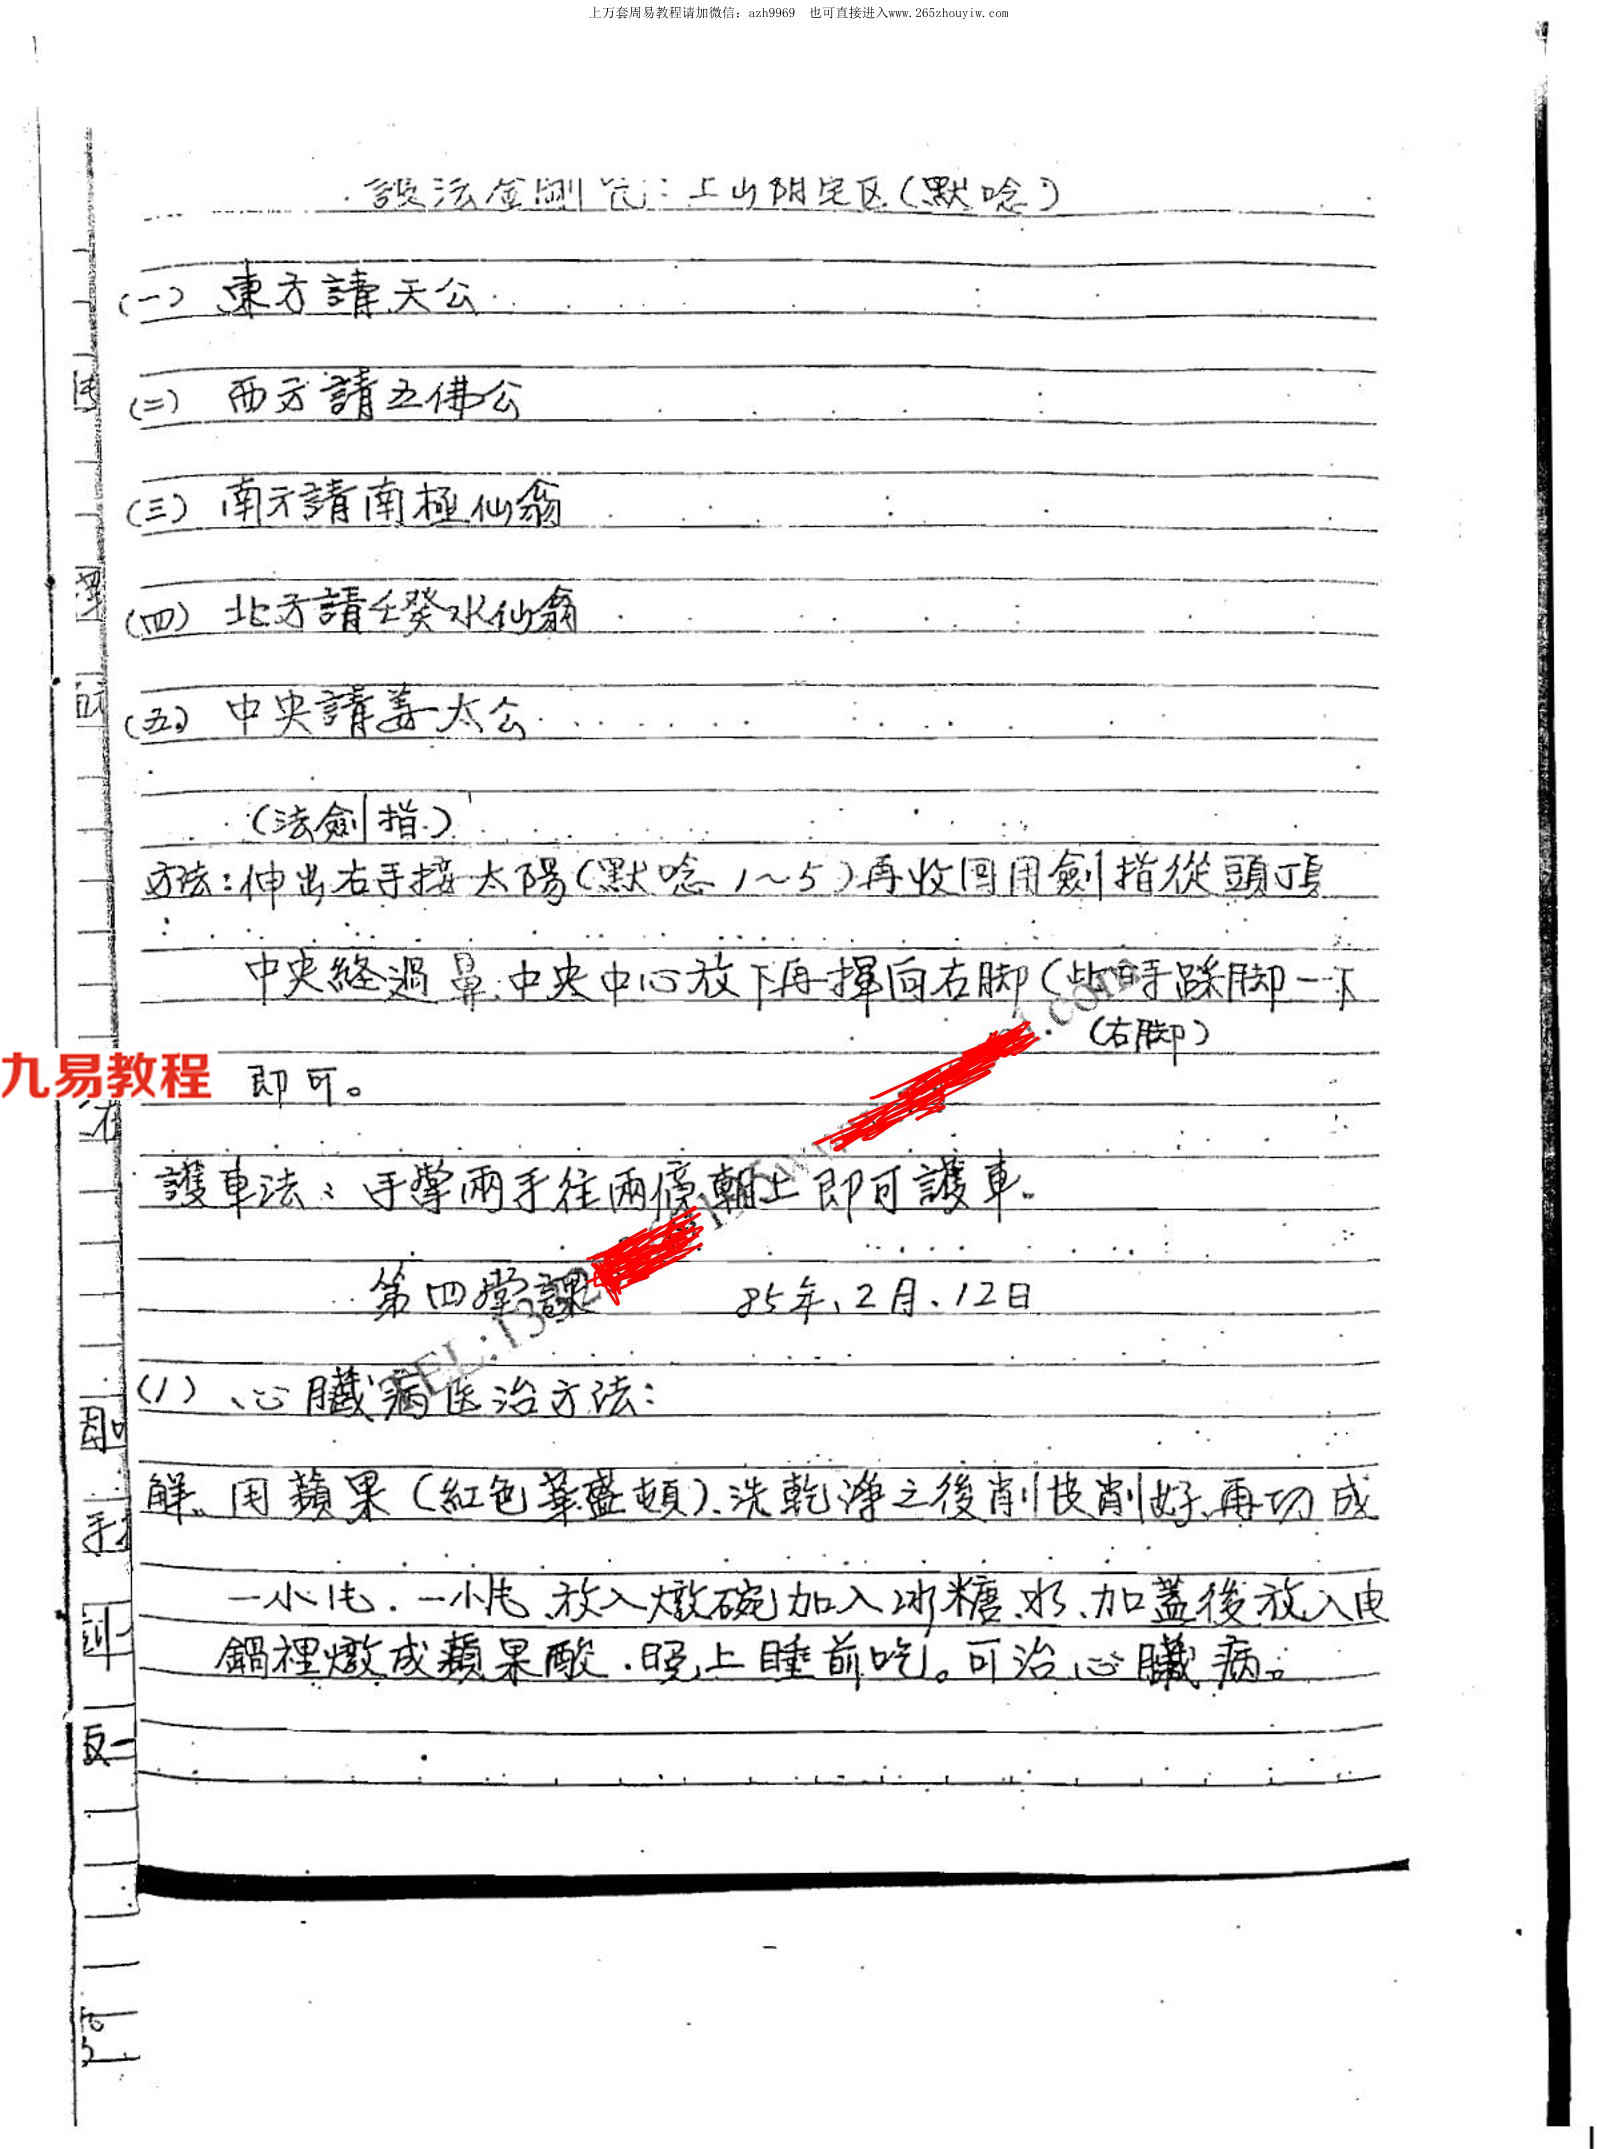 上万套周易教程请加微信：azh9969 也可直接进入www.265zhouyiw.com
設法金剛咒：上山阴宅区(默唸)
(一) 東方請天公
(二) 西方請五佛公
(三) 南方請南極仙翁
(四) 北方請壬癸水仙翁
(五) 中央請姜太公
(法劍指)
方法：伸出右手接太陽(默唸1～5)再收回用劍指從頭頂
中央經過鼻.中央中心放下再揮向右脚(此時手踩脚一下
(右脚)
九易教程
即可。
護車法：手掌兩手往兩傍軸上即可護車。
第四堂課 85年、2月、12日
TEL:13
.com
(1)、心臟病医治方法：
解、用蘋果(紅色華盛頓).洗乾淨之後削皮削好、再切成
一小片.一小片、放入燉碗加入冰糖、水、加蓋後放入电
鍋裡燉成蘋果酸.晚上睡前吃。可治心臟病。